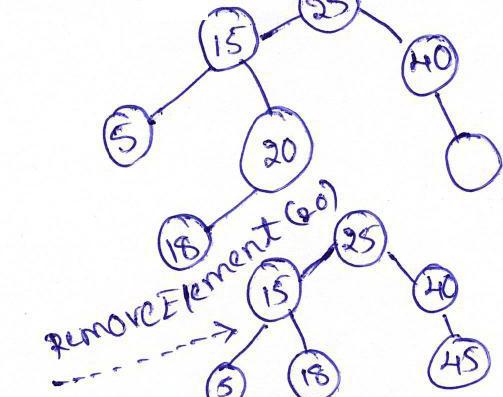 25
15
40
5
20
18
RemoveElement(20)
25
15
40
5
18
45